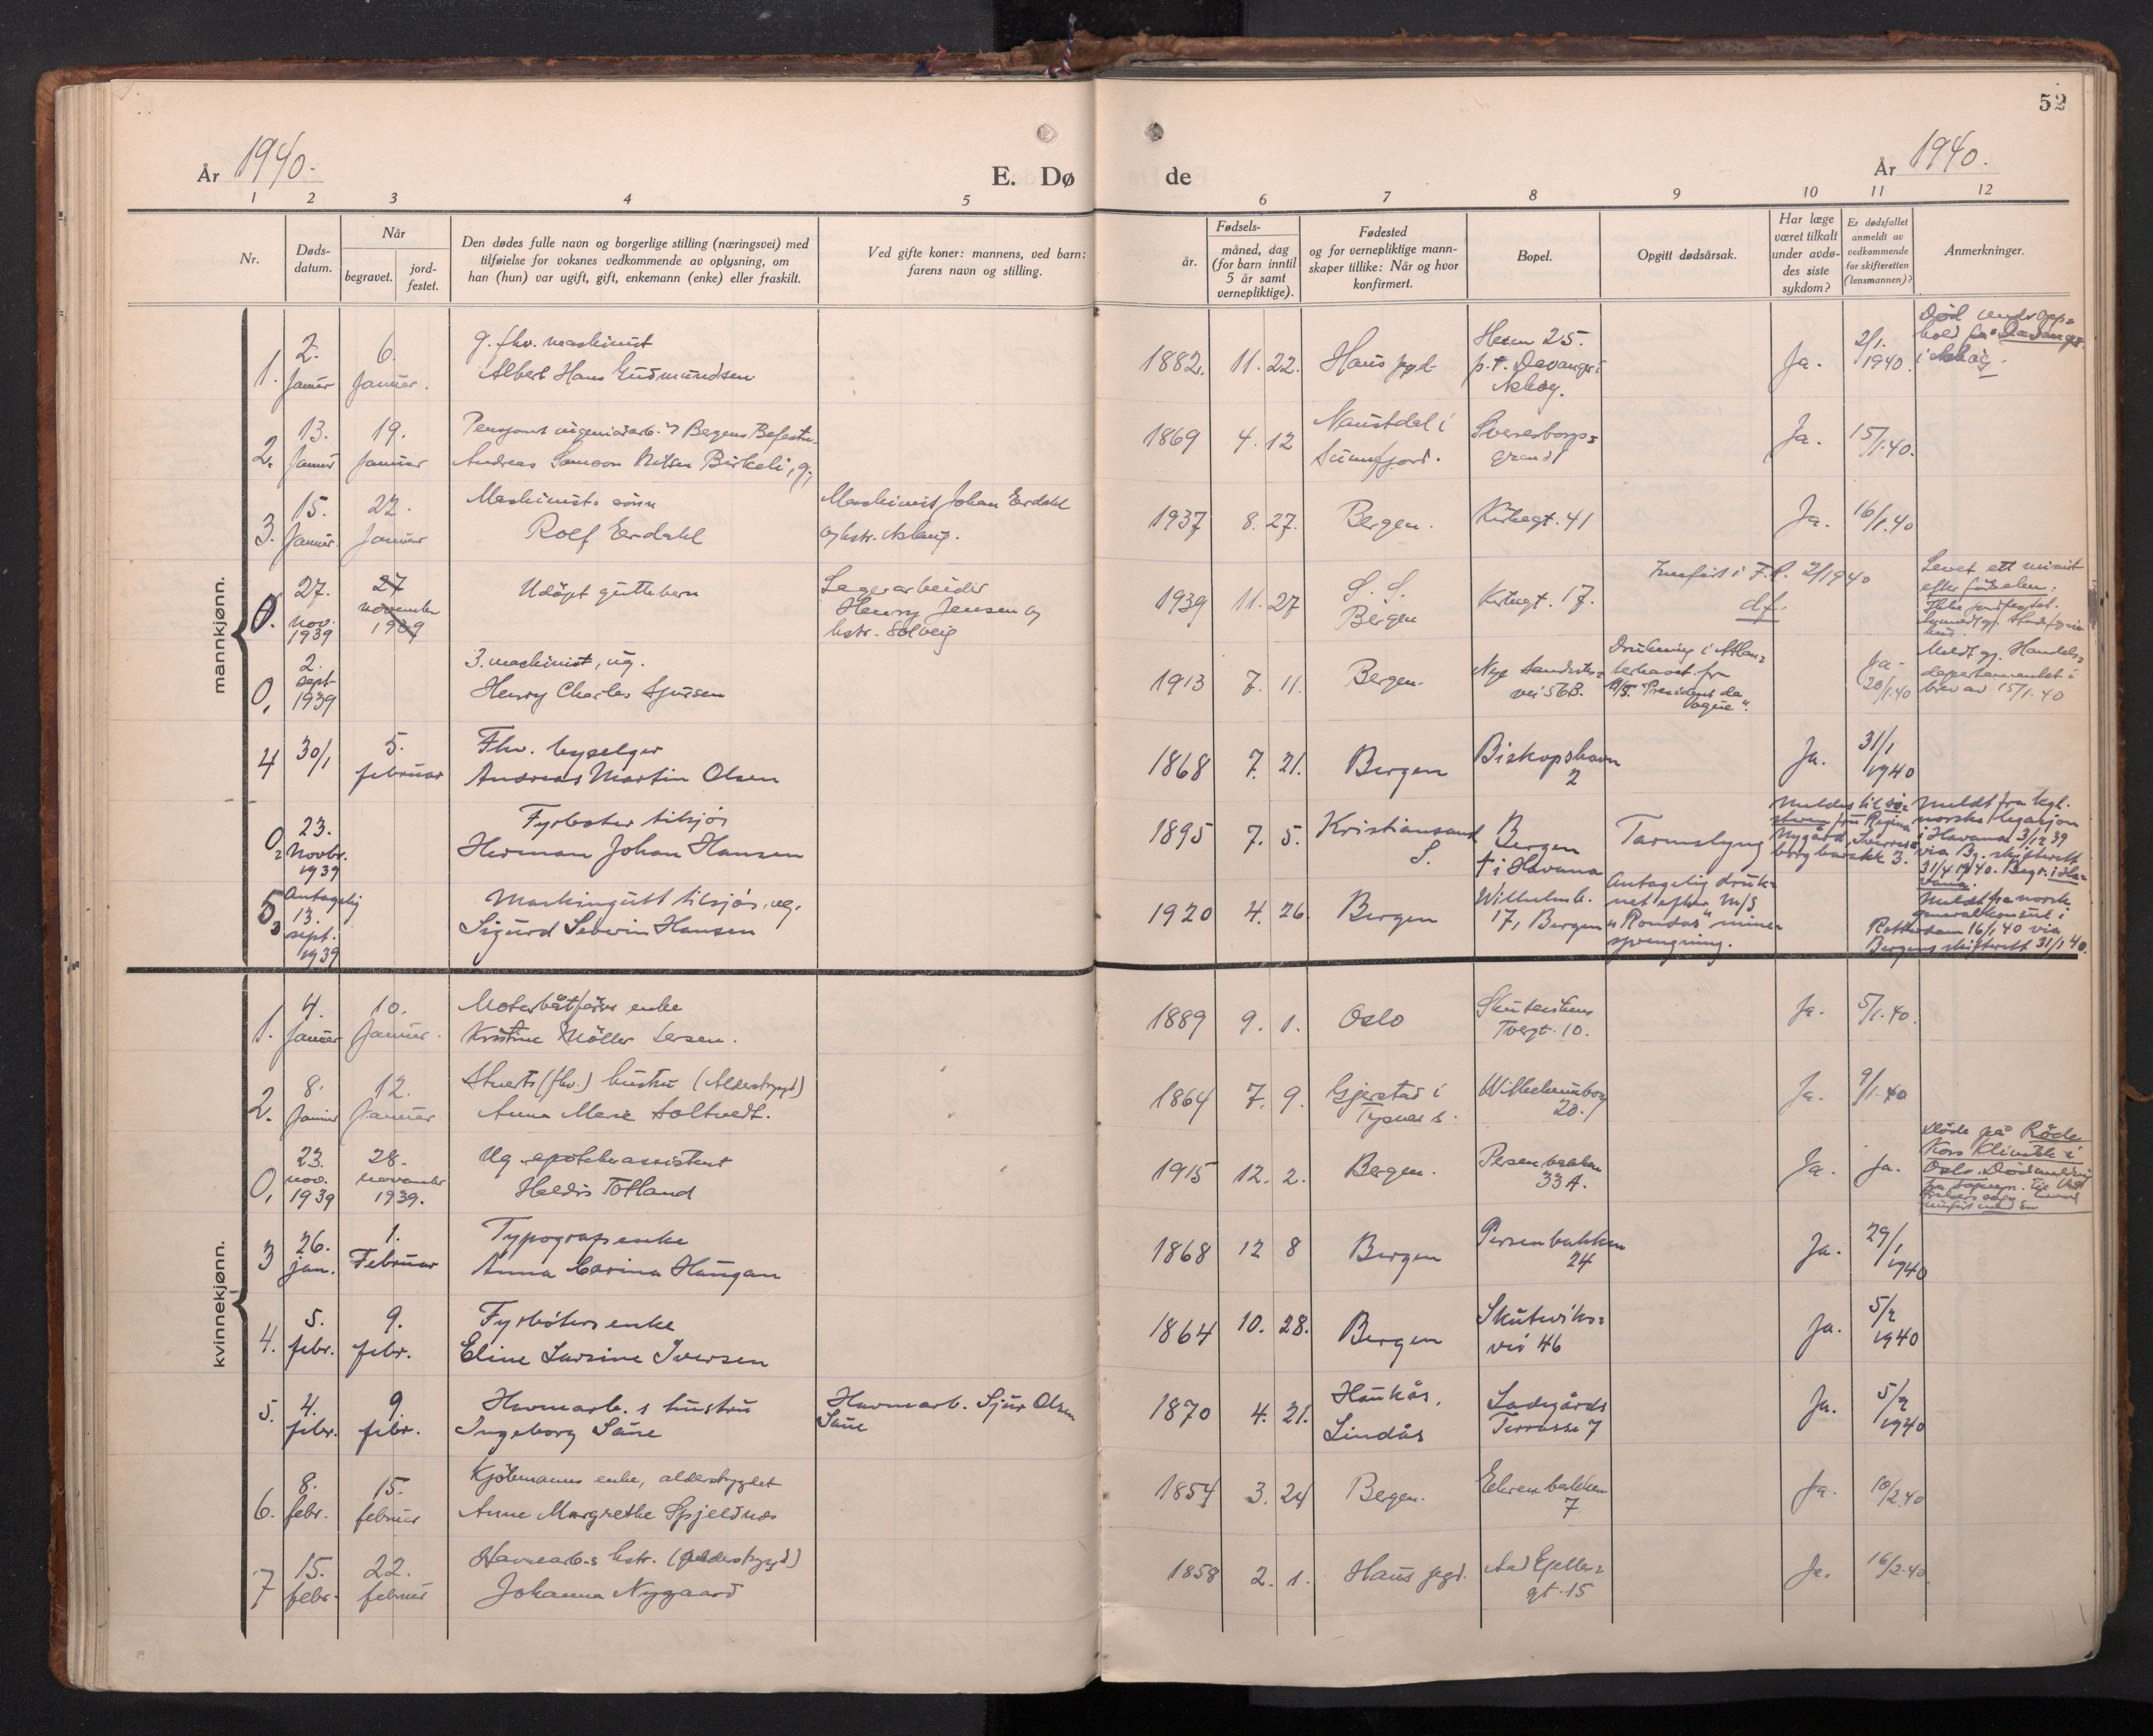 52
År 1940.
E. Dø
de
År 1940.
1 2 3 4 5 6 7 8 9 10 11 12
Nr.
Døds-
datum.
Når
begravet.
jord-
festet.
Den dødes fulle navn og borgerlige stilling (næringsvei) med
tilføielse for voksnes vedkommende av oplysning, om
han (hun) var ugift, gift, enkemann (enke) eller fraskilt.
Ved gifte koner: mannens, ved barn:
farens navn og stilling.
Fødsels-
år.
måned, dag
(for barn inntil
5 år samt
vernepliktige).
Fødested
og for vernepliktige mann-
skaper tillike: Når og hvor
konfirmert.
Bopel.
Opgitt dødsårsak.
Har læge
været tilkalt
under avdø-
des siste
sykdom?
Er dødsfallet
anmeldt av
vedkommende
for skifteretten
(lensmannen)?
Anmerkninger.
mannkjønn.
1. 2. Januar 6. Januar.
g. fhv. maskinist
Albert Hans Gudmundsen
1882. 11. 22. Haus pgd.
25.
p.t. Davanger i
Askøy.
Ja. 2/1. 1940.
Død under opp=
hold på Davanger
i Askøy.
2. 13. Januar 19. Januar
Andreas Nilsen Birkeli, g.
1869 4. 12 Naustdal i
Sunnfjord.
Sverresborgs=
Ja. 15/1.40.
3. 15. Januar. 22. Januar
Maskinists sønn
Rolf Erdahl
Maskinist Johan Erdahl
og hstr. Aslaug.
1937 8. 27. Bergen. Kirkegt. 41 Ja. 16/1.40
0. 27. nov. 1939 27 november 1939
Udöpt guttebarn
Lagerarbeider
Henry Jensen og
hstr. Solveig
1939 11. 27 S. S.
Bergen
Kirkegt. 17.
Innført i F.R. 2/1940
d.f.
Levet ett minut
efter fødselen.
Ikke jordfestet.
0, 2. sept. 1939
3. maskinist, ug.
Henry Charles Sjursen
1913 7. 11. Bergen. Nye Sandviks=
vei 56B.
Drukning i Atlan=
terhavet fra
Ja. 20/1.40
Meldt gj. Handels=
departementet i
brev av 15/1.40
4 30/1 5. februar
Fhv. byselger
Andreas Martin Olsen
1868 7. 21. Bergen Biskopshavn
2
Ja. 31/1 1940
0 2 23. Novbr. 1939
Fyrböter tilsjös
Herman Johan Hansen
1895 7. 5. Kristiansand
S.
Bergen
† i Havana
Tarmslyng
Meldes til sö=
steren fru Regina
Nygård, Sverres=
borg barakk 3.
Meldt fra kgl.
norske legasjon
i Havana 3/12 39
via Bg. skifterett
31/1 1940. Begr. i Ha=
vana.
5 3 Antagelig
13. sept. 1939
Maskingutt tilsjös, ug.
Sigurd Severin Hansen
1920 4. 26. Bergen Wilhelmb.
17, Bergen
Antagelig druk=
net efter M/S
"Rondas" mine=
sprengning.
Meldt fra norsk
generalkonsul i
Rotterdam 16/1 40 via
Bergens skifterett 31/1 40.
kvinnekjønn.
1. 4. Januar 10. Januar.
Motorbåtförer enke
Kristine Möller Larsen.
1889 9. 1. Oslo
Tvergt. 10.
Ja. 5/1.40.
2. 8. Januar 12. Januar
Stuerts (fhv.) hustru (Alderstrygd)
Anna Marie Soltvedt.
1864 7. 9. Gjerstad i
Tysvær s.
Wilhelmsborg
20.
Ja. 9/1.40
0, 23. nov. 1939 28. november 1939.
Ug. apotekerassistent
Haldis Totland
1915 12. 2. Bergen. Persenbakken
33A.
Ja. Ja.
Døde på Røde
Kors Klinikk i
Oslo.
3 26. jan. 1. Februar
Typografsenke
Anna Carina Haugan
1868 12 8 Bergen Persenbakken
24
Ja. 29/1 1940
4. 5. febr. 9. febr.
Fyrböters enke
Eline Lursine Iversen
1864 10. 28. Bergen Skuteviks=
vei 46
Ja. 5/2 1940
5. 4. febr. 9. febr.
Havnearb.s hustru
Ingeborg Saue
Havnearb. Sjur Olsen
Saue
1870 4. 21. Haukås,
Lindås
Ladegårds
Terrasse 7
Ja. 5/2 1940
6. 8. febr. 15. februar
Kjöbmanns enke, alderstrygdet
Anne Margrethe Spjeldnæs
1854 3. 24 Bergen. Ekrenbakken
7
Ja. 10/2.40
7 15. febr. 22. februar
Havnearb.s hstr. (Alderstrygd)
Johanna Nygaard
1858 2. 1. Haus pgd.
gt. 15
Ja. 16/2.40